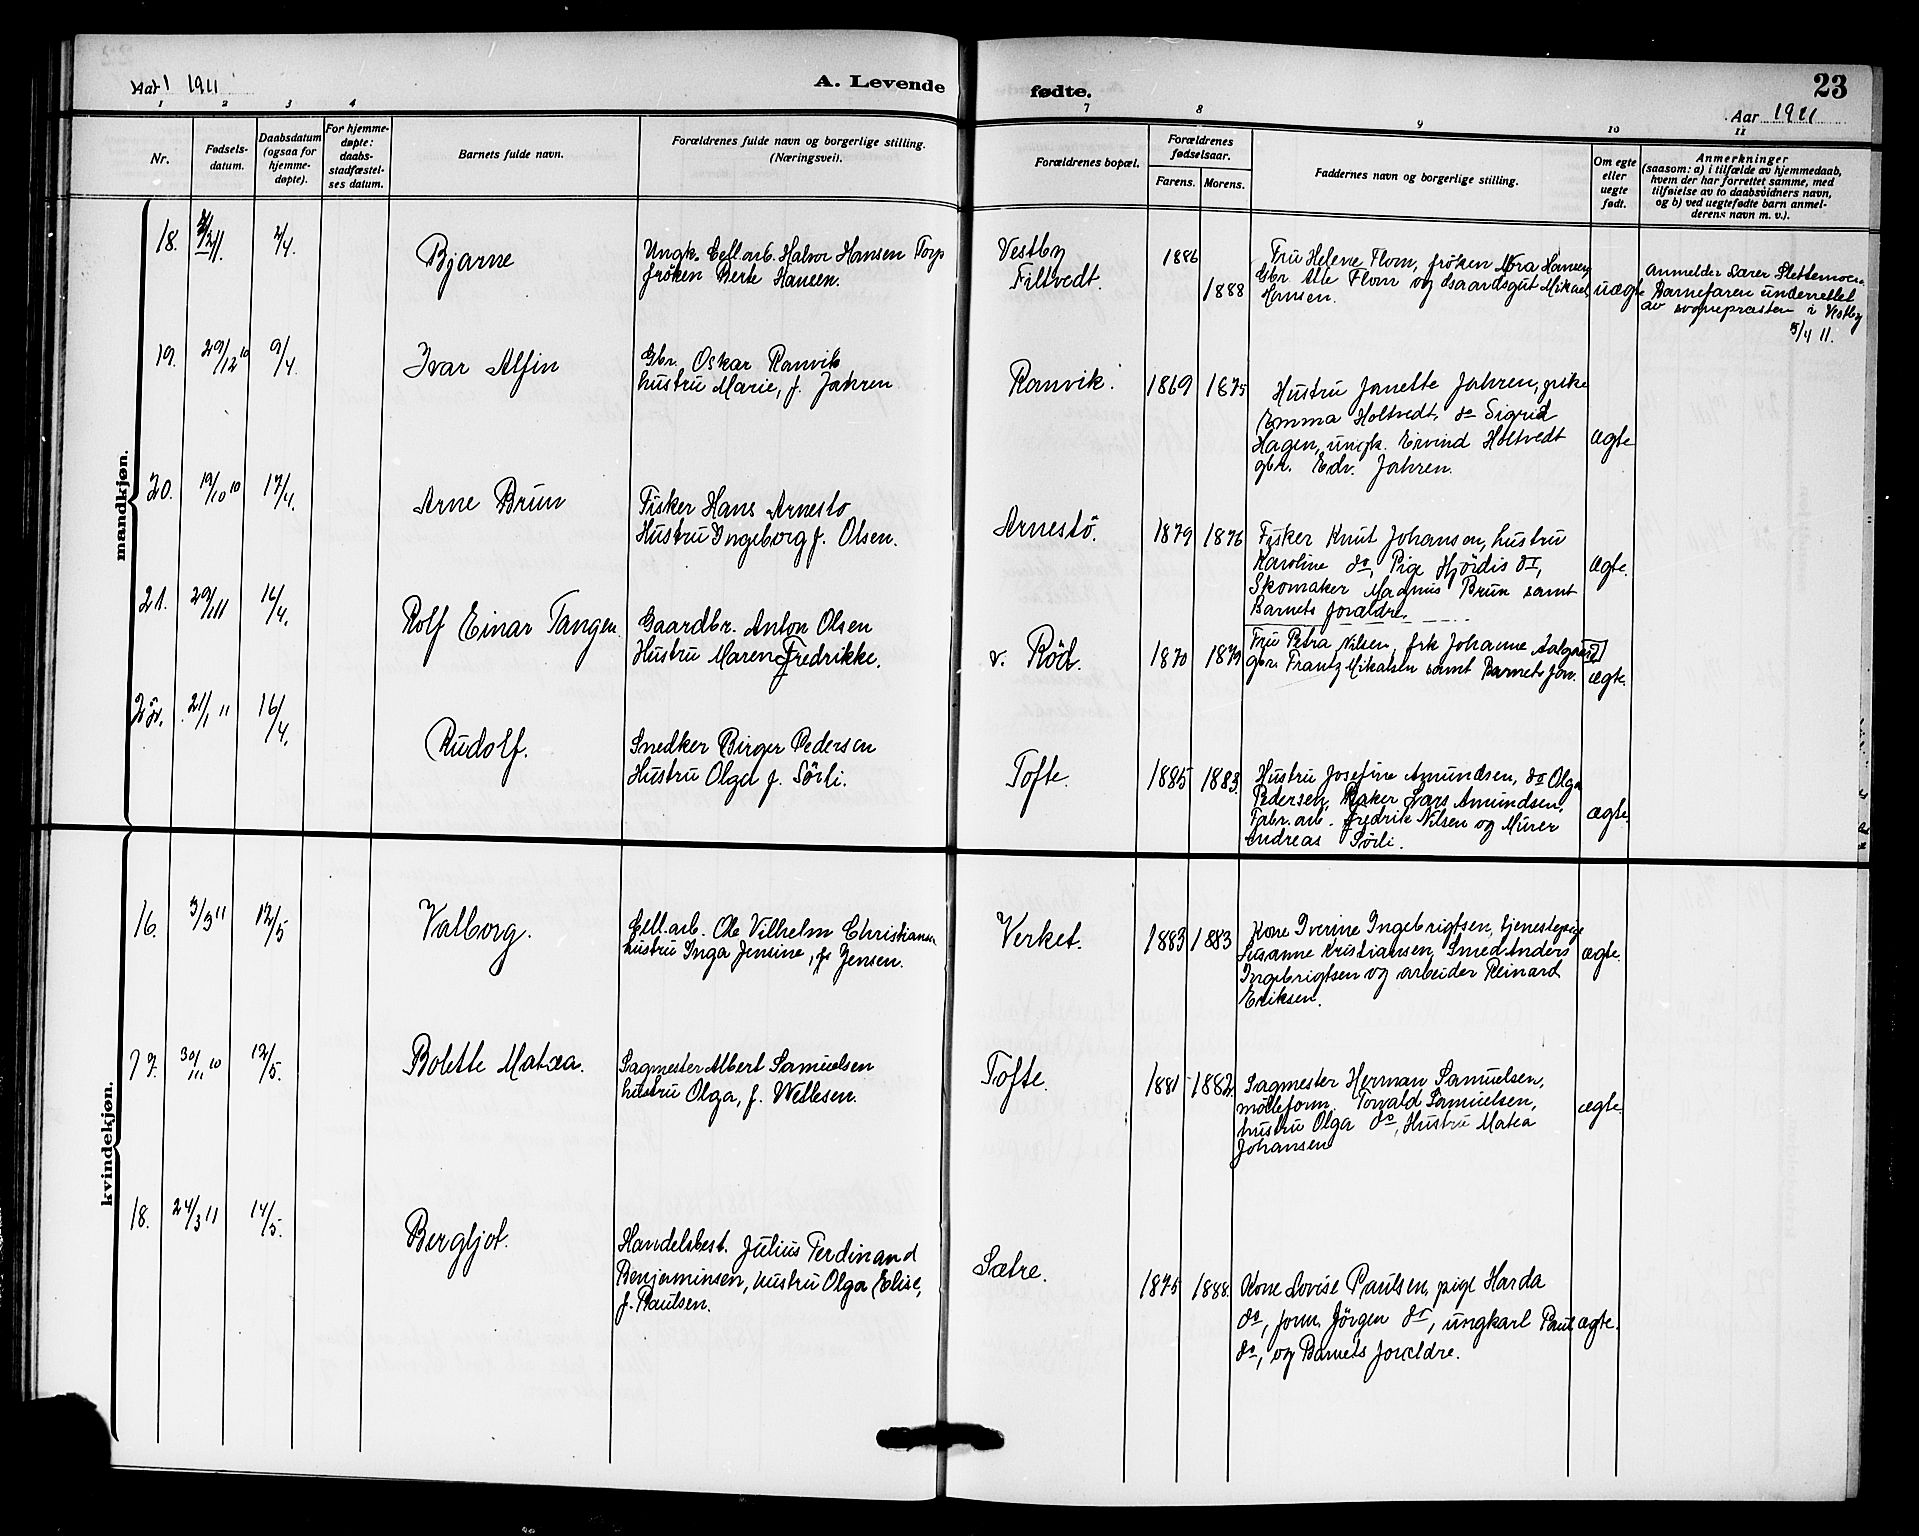 Aar 1911
A. Levende fødte.
23
Aar 1911
1 2 3 4 7 8 9 10 11
Nr.
Fødsels-
datum.
Daabsdatum
(ogsaa for
hjemme-
døpte).
For hjemme-
døpte:
daabs-
stadfæstel-
ses datum.
Barnets fulde navn.
Forældrenes fulde navn og borgerlige stilling.
(Næringsvei).
Forældrenes bopæl.
Forældrenes
fødselsaar.
Farens. Morens.
Faddernes navn og borgerlige stilling.
Om egte
eller
uegte
født.
Anmerkninger
(saasom: a) i tilfælde av hjemmedaab,
hvem der har forrettet samme, med
tilføielse av to daabsvidners navn,
og b) ved uegtefødte barn anmel-
derens navn m. v.).
mandkjøn.
18. 2/4. Bjarne
Ungk. Cell.arb. Halvor Hansen Torp
frøken Berte Hansen.
Vestby
Filtvedt.
1886 1888
Fru Helene Flom, frøken Nora Hansen
Gbr. Atle Flom og Gaardsgut Mikael
Hansen.
uægte
Anmelder
Barnefaren underrettet
av sogneprästen i Vestby
5/4 11.
19. 29/12 10 9/4. Ivar Alfin
Gbr. Oskar Ranvik
hustru Marie, f. Jahren
Ranvik. 1869 1875
Hustru Janette Jahren, pike
Emma Holtvedt, do Sigrid
Hagen, ungk. Eivind Holtvedt
gbr. Edv. Jahren.
ægte
20. 19/10 10 17/4. Arne Brun
Fisker Hans Arnestö
Hustru Ingeborg f. Olsen.
Arnestö. 1879 1876
Fisker Knut Johansen, hustru
Karoline do, Pige Hjördis do,
Skomaker Magnus Brun samt
Barnets forældre.
ægte.
21. 29/1 11 16/4. Rolf Einar Tangen
Gaardbr. Anton Olsen
Hustru Maren Fredrikke.
v. Röd. 1870 1879
Fru Petra Nilsen, frk Johanne Aalgaard
gbr. Frantz Mikalsen samt Barnets for.
ægte.
22. 21/1 11 16/4. Rudolf.
Snedker Birger Pedersen
Hustru Olga f. Sörli.
Tofte. 1885 1883.
Hustru Josefine Amundsen, do Olga
Pedersen, Lars Amundsen,
Fabr. arb. Fredrik Nilsen og Murer
Andreas Sörli.
ægte.
kvindekjøn.
16. 3/3 11 12/5 Valborg.
Cell.arb. Ole Vilhelm Christiansen
hustru Inga Jensine, f. Jensen.
Verket. 1883 1883
Kone Iverine Ingebrigtsen, tjenestepige
Susanne Kristiansen, Smed Anders
Ingebrigtsen og arbeider Reinard
Eriksen.
ægte.
17. 30/11 10 12/5. Bolette Matea.
Sagmester Albert Samuelsen
hustru Olga, f. Wellesen.
Tofte. 1881 1882
Sagmester Herman Samuelsen,
mölleform. Torvald Samuelsen,
hustru Olga do, Hustru Matea
Johansen
ægte
18. 24/3 11 14/5. Bergljot.
Handelsbest. Julius Ferdinand
Benjaminsen, hustru Olga Elise,
f. Paulsen.
Sætre. 1875 1888.
Kone Lovise Paulsen, pige Harda
do, form. Jörgen do, ungkarl Paul
do, og Barnets forældre.
ægte.